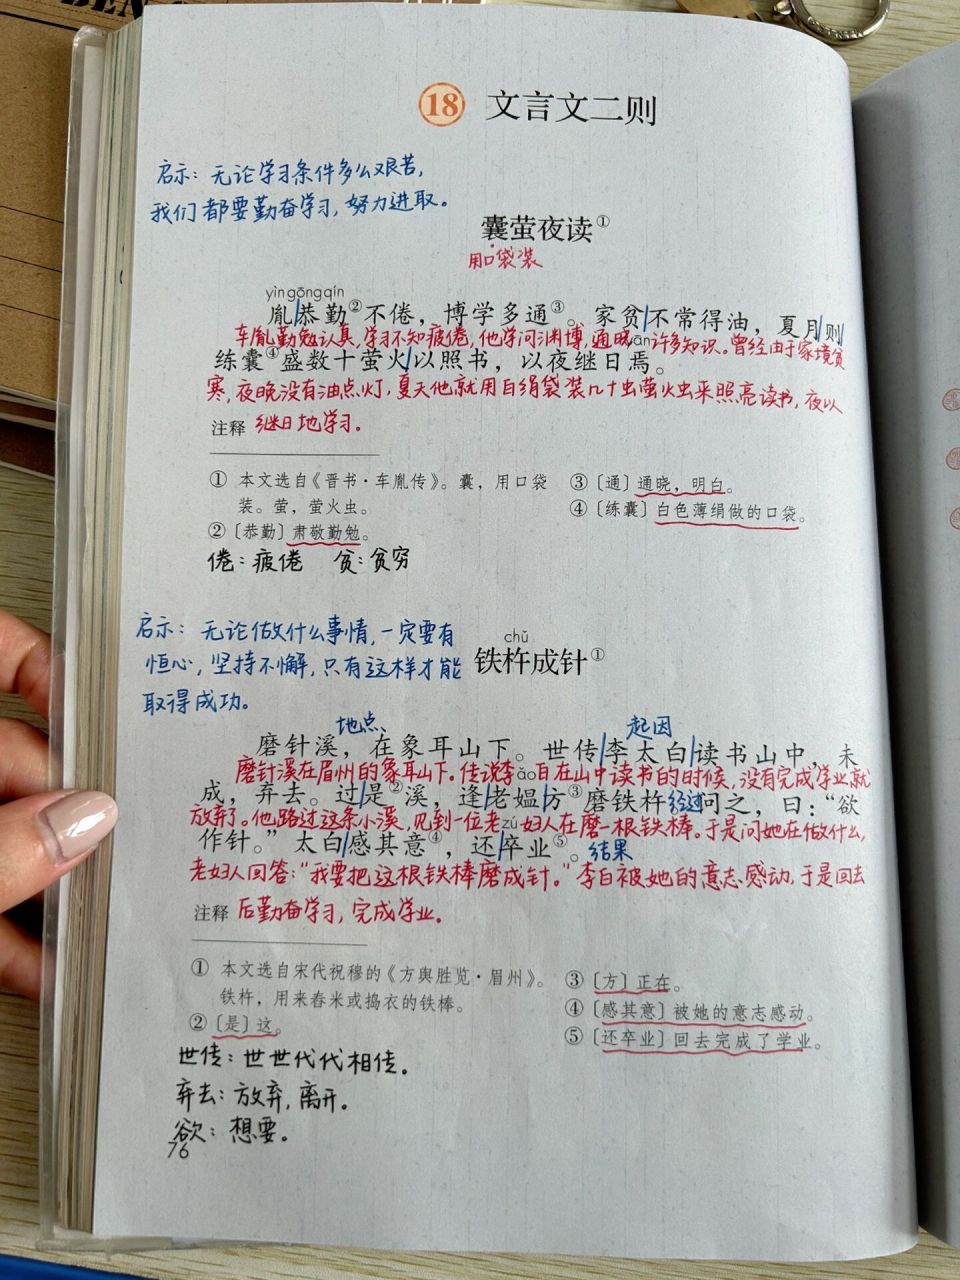 18 文言文二则
启示：无论学习条件多么艰苦，
我们都要勤奋学习，努力进取。
囊萤夜读①
用口袋装
yìn gōng qín
胤恭勤②不倦，博学多通③。家贫不常得油，夏月则
车胤勤勉认真，学习不知疲倦，他学问渊博，通晓许多知识。曾经由于家境贫
练囊④盛数十萤火以照书，以夜继日焉。
寒，夜晚没有油点灯，夏天他就用白绢袋装几十虫萤火虫来照亮读书，夜以
注释 继日地学习。
① 本文选自《晋书·车胤传》。囊，用口袋
装。萤，萤火虫。
② 〔恭勤〕肃敬勤勉。
③ 〔通〕通晓，明白。
④ 〔练囊〕白色薄绢做的口袋。
倦：疲倦 贫：贫穷
启示：无论做什么事情，一定要有
恒心，坚持不懈，只有这样才能
取得成功。
chǔ
铁杵成针①
地点 起因
磨针溪，在象耳山下。世传李太白读书山中，未
磨针溪在眉州的象耳山下。传说李白在山中读书的时候，没有完成学业就
ǎo
成，弃去。过是②溪，逢老媪方③磨铁杵 经过 问之，曰：“欲
放弃了。他路过这条小溪，见到一位老妇人在磨一根铁棒。于是问她在做什么，
zú
作针。”太白感其意④，还卒业⑤。 结果
老妇人回答：“我要把这根铁棒磨成针。”李白被她的意志感动，于是回去
注释 后勤奋学习，完成学业。
① 本文选自宋代祝穆的《方舆胜览·眉州》。
铁杵，用来舂米或捣衣的铁棒。
② 〔是〕这。
③ 〔方〕正在。
④ 〔感其意〕被她的意志感动。
⑤ 〔还卒业〕回去完成了学业。
世传：世世代代相传。
弃去：放弃，离开。
欲：想要。
76